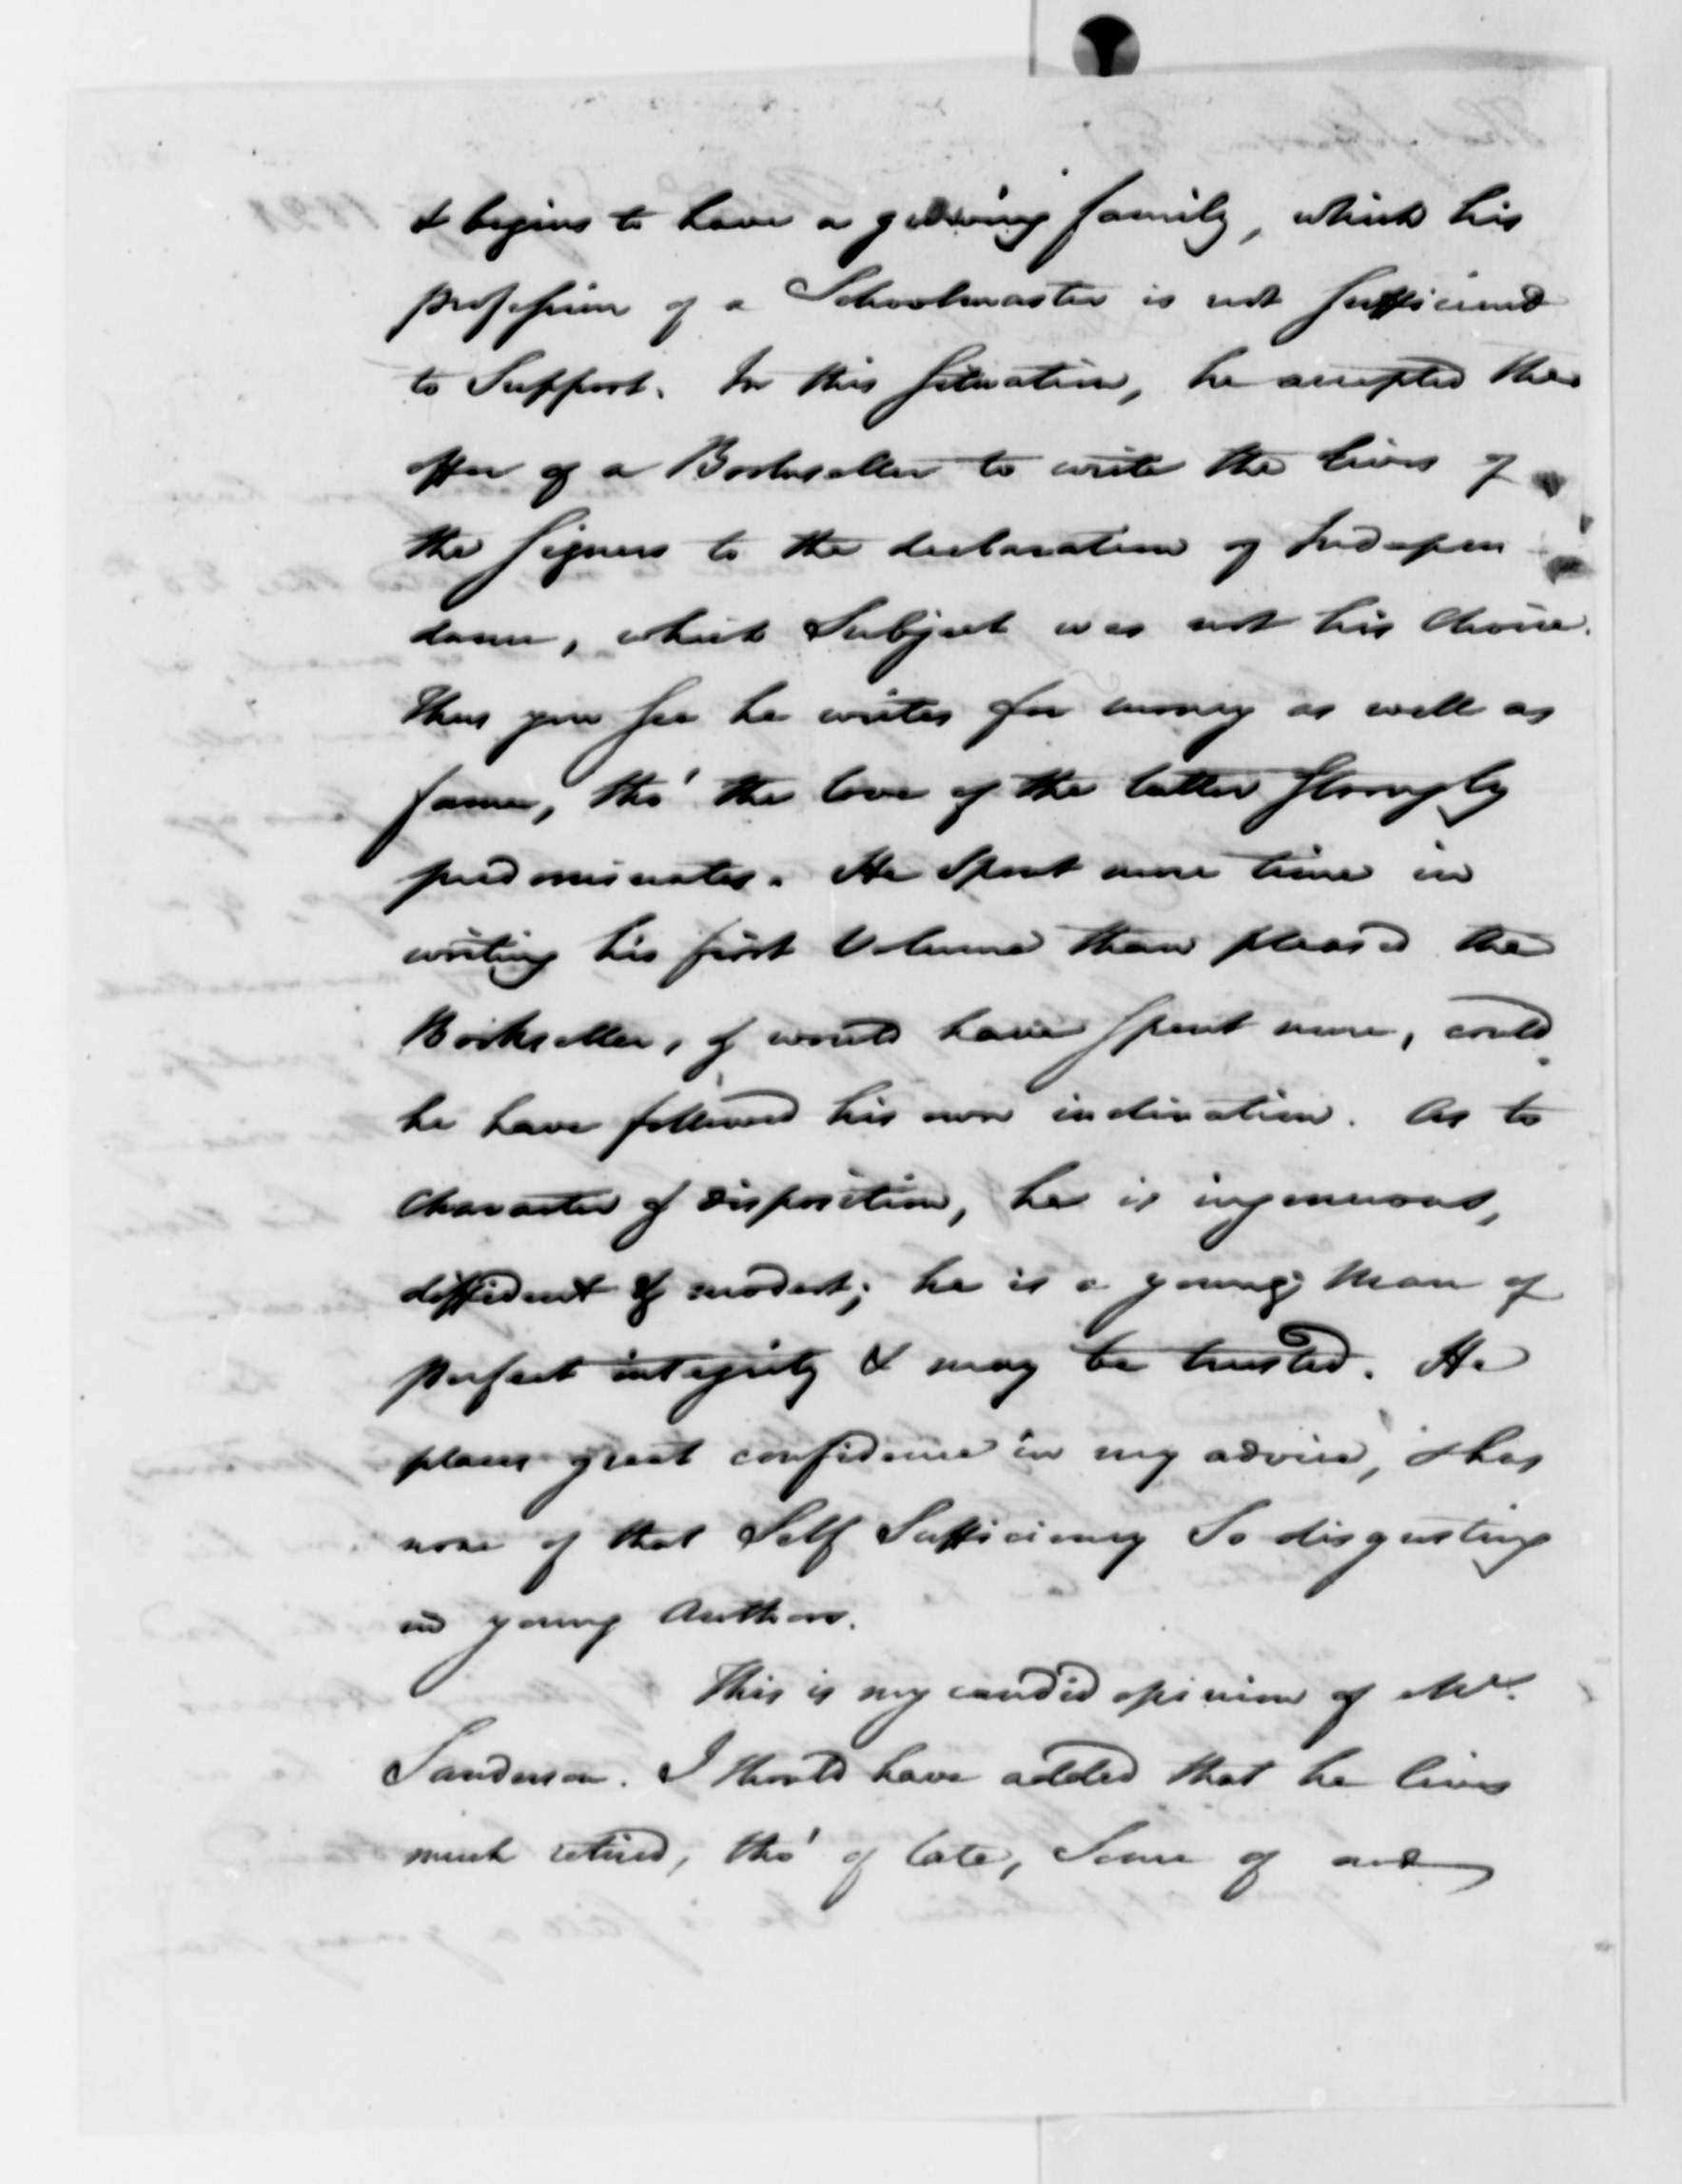 & begins to have a growing family, which his
profession of a Schoolmaster is not sufficient
to Support. In this situation, he accepted the
offer of a Bookseller to write the lives of
the signers to the declaration of Indepen
dance, which Subject was not his Choice.
Thus you see he writes for money as well as
fame, tho' the love of the latter strongly
predominates. He Spent more time in
writing his first Volume than pleased the
Bookseller, & would have spent more, could
he have followed his own inclination. As to
Character & disposition, he is ingenuous,
diffident & modest; he is a young Man of
perfect integrity & may be trusted. He
places great confidence in my advice, & has
none of that Self Sufficiency So disgusting
in young Authors.
This is my candid opinion of Mr.
Sanderson. I should have added that he lives
much retired, tho' of late, Some of our